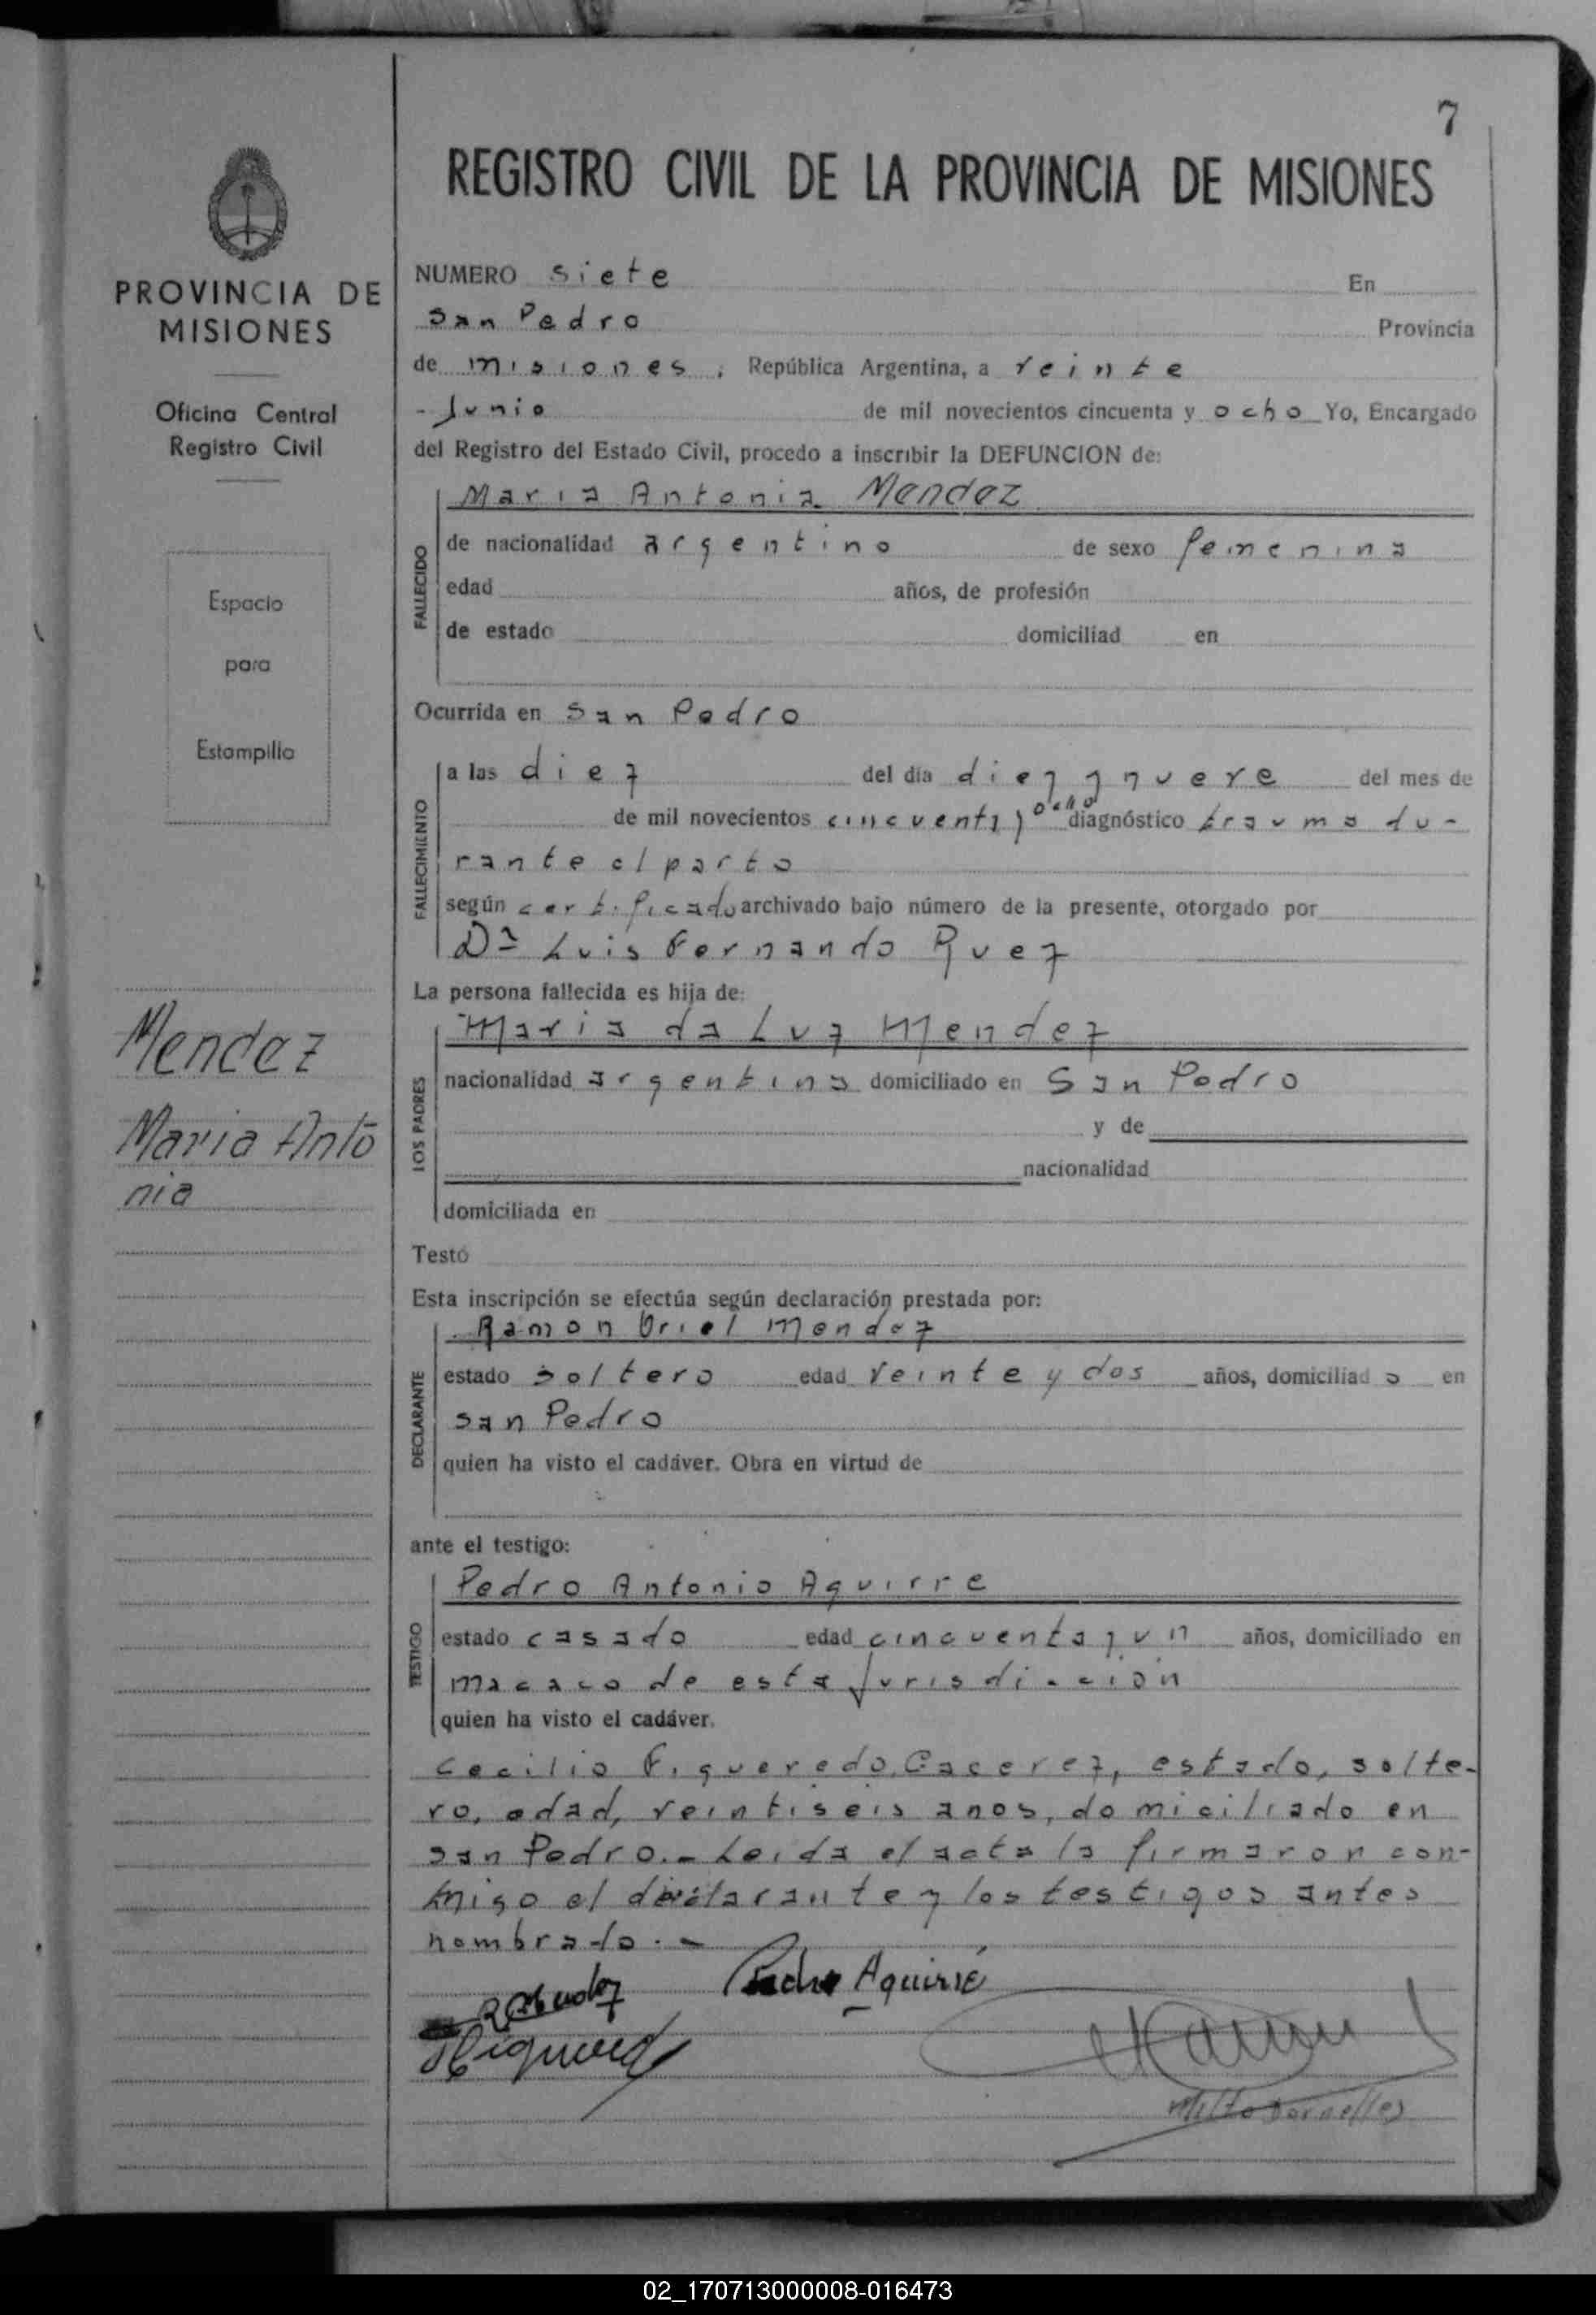 7
REGISTRO CIVIL DE LA PROVINCIA DE MISIONES
PROVINCIA DE
MISIONES
Oficina Central
Registro Civil
Espacio
para
Estampilla
Mendez
Maria Anto
nia
NUMERO siete En
San Pedro Provincia
de misiones, República Argentina, a veinte
- Junio de mil novecientos cincuenta y ocho Yo, Encargado
del Registro del Estado Civil, procedo a inscribir la DEFUNCION de:
FALLECIDO
Maria Antonia Mendez
de nacionalidad argentino de sexo femenina
edad años, de profesión
de estado domiciliad en
Ocurrida en San Pedro
FALLECIMIENTO
a las diez del día diez y nueve del mes de
de mil novecientos cincuenta y ocho diagnóstico trauma du-
rante el parto
según certificado archivado bajo número de la presente, otorgado por
Dr Luis Fernando Ruez
La persona fallecida es hija de:
LOS PADRES
Maria da Luz Mendez
nacionalidad argentina domiciliado en San Pedro
y de
nacionalidad
domiciliada en
Testó
Esta inscripción se efectúa según declaración prestada por:
DECLARANTE
Ramon Oriel Mendez
estado soltero edad veinte y dos años, domiciliad o en
San Pedro
quien ha visto el cadáver. Obra en virtud de
ante el testigo:
TESTIGO
Pedro Antonio Aguirre
estado casado edad cincuenta y un años, domiciliado en
macaco de esta Jurisdiccion
quien ha visto el cadáver.
Cecilio Figueredo Cacerez, estado, solte-
ro, edad, veintiseis anos, domiciliado en
San Pedro.- Leida el acta la firmaron con-
migo el declarante y los testigos antes
nombrado.-
Pedro Aguirre
02_170713000008-016473